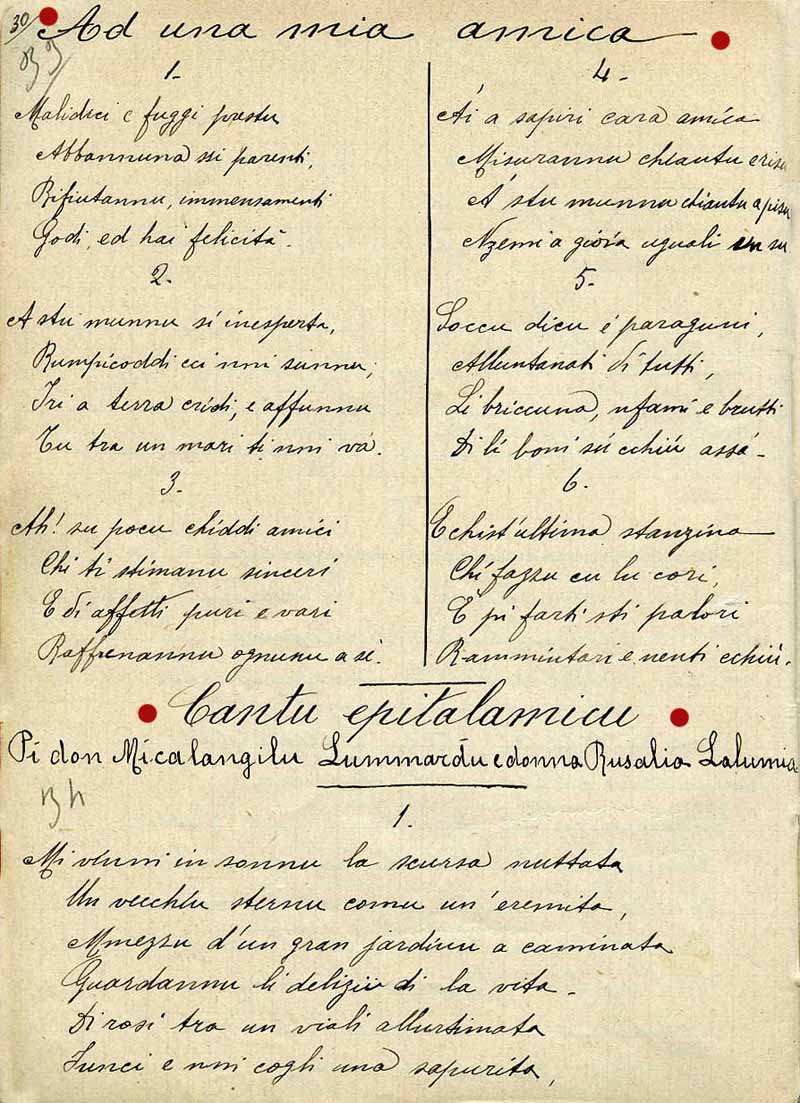 30
Ad una mia amica
33
1-
Malidici e fuggi prestu
Abbannuna ssi parenti,
Rifiutannu, immensamenti
Godi, ed hai felicità.
2-
A stu munnu si inesperta,
Rumpicoddi cci nni sunnu;
Iri a terra cridi, e affunnu
Tu tra un mari ti nni và.
3-
Ah! su pocu chiddi amici
Chi ti stimanu sinceri
E di affetti puri e vari
Raffrenannu ognunu a sè.
4-
Ái a sapiri cara amica
Misurannu chiantu e risu
A' stu munnu chiantu a pisu
Nzemi a gioia uguali su
5-
Soccu dicu è paraguni,
Alluntanati di tutti,
Li briccuna, nfami e brutti
Di li boni sù cchiù assà-
6-
E chist'ultima stanzina
Chi fazzu cu lu cori,
E pi farti sti palori
Rammintari e nenti cchiù-
Cantu epitalamicu
Pi don Micalangilu Lummardu e donna Rusalia Lalumia
34
1.
Mi vinni in sonnu la scursa nuttata
Un vecchiu sternu comu un'eremita,
Mmezzu d'un gran jardinu a caminata
Guardannu li delizii di la vita-
Di rosi tra un viali allustimata
Junci e nni cogli una sapurita,